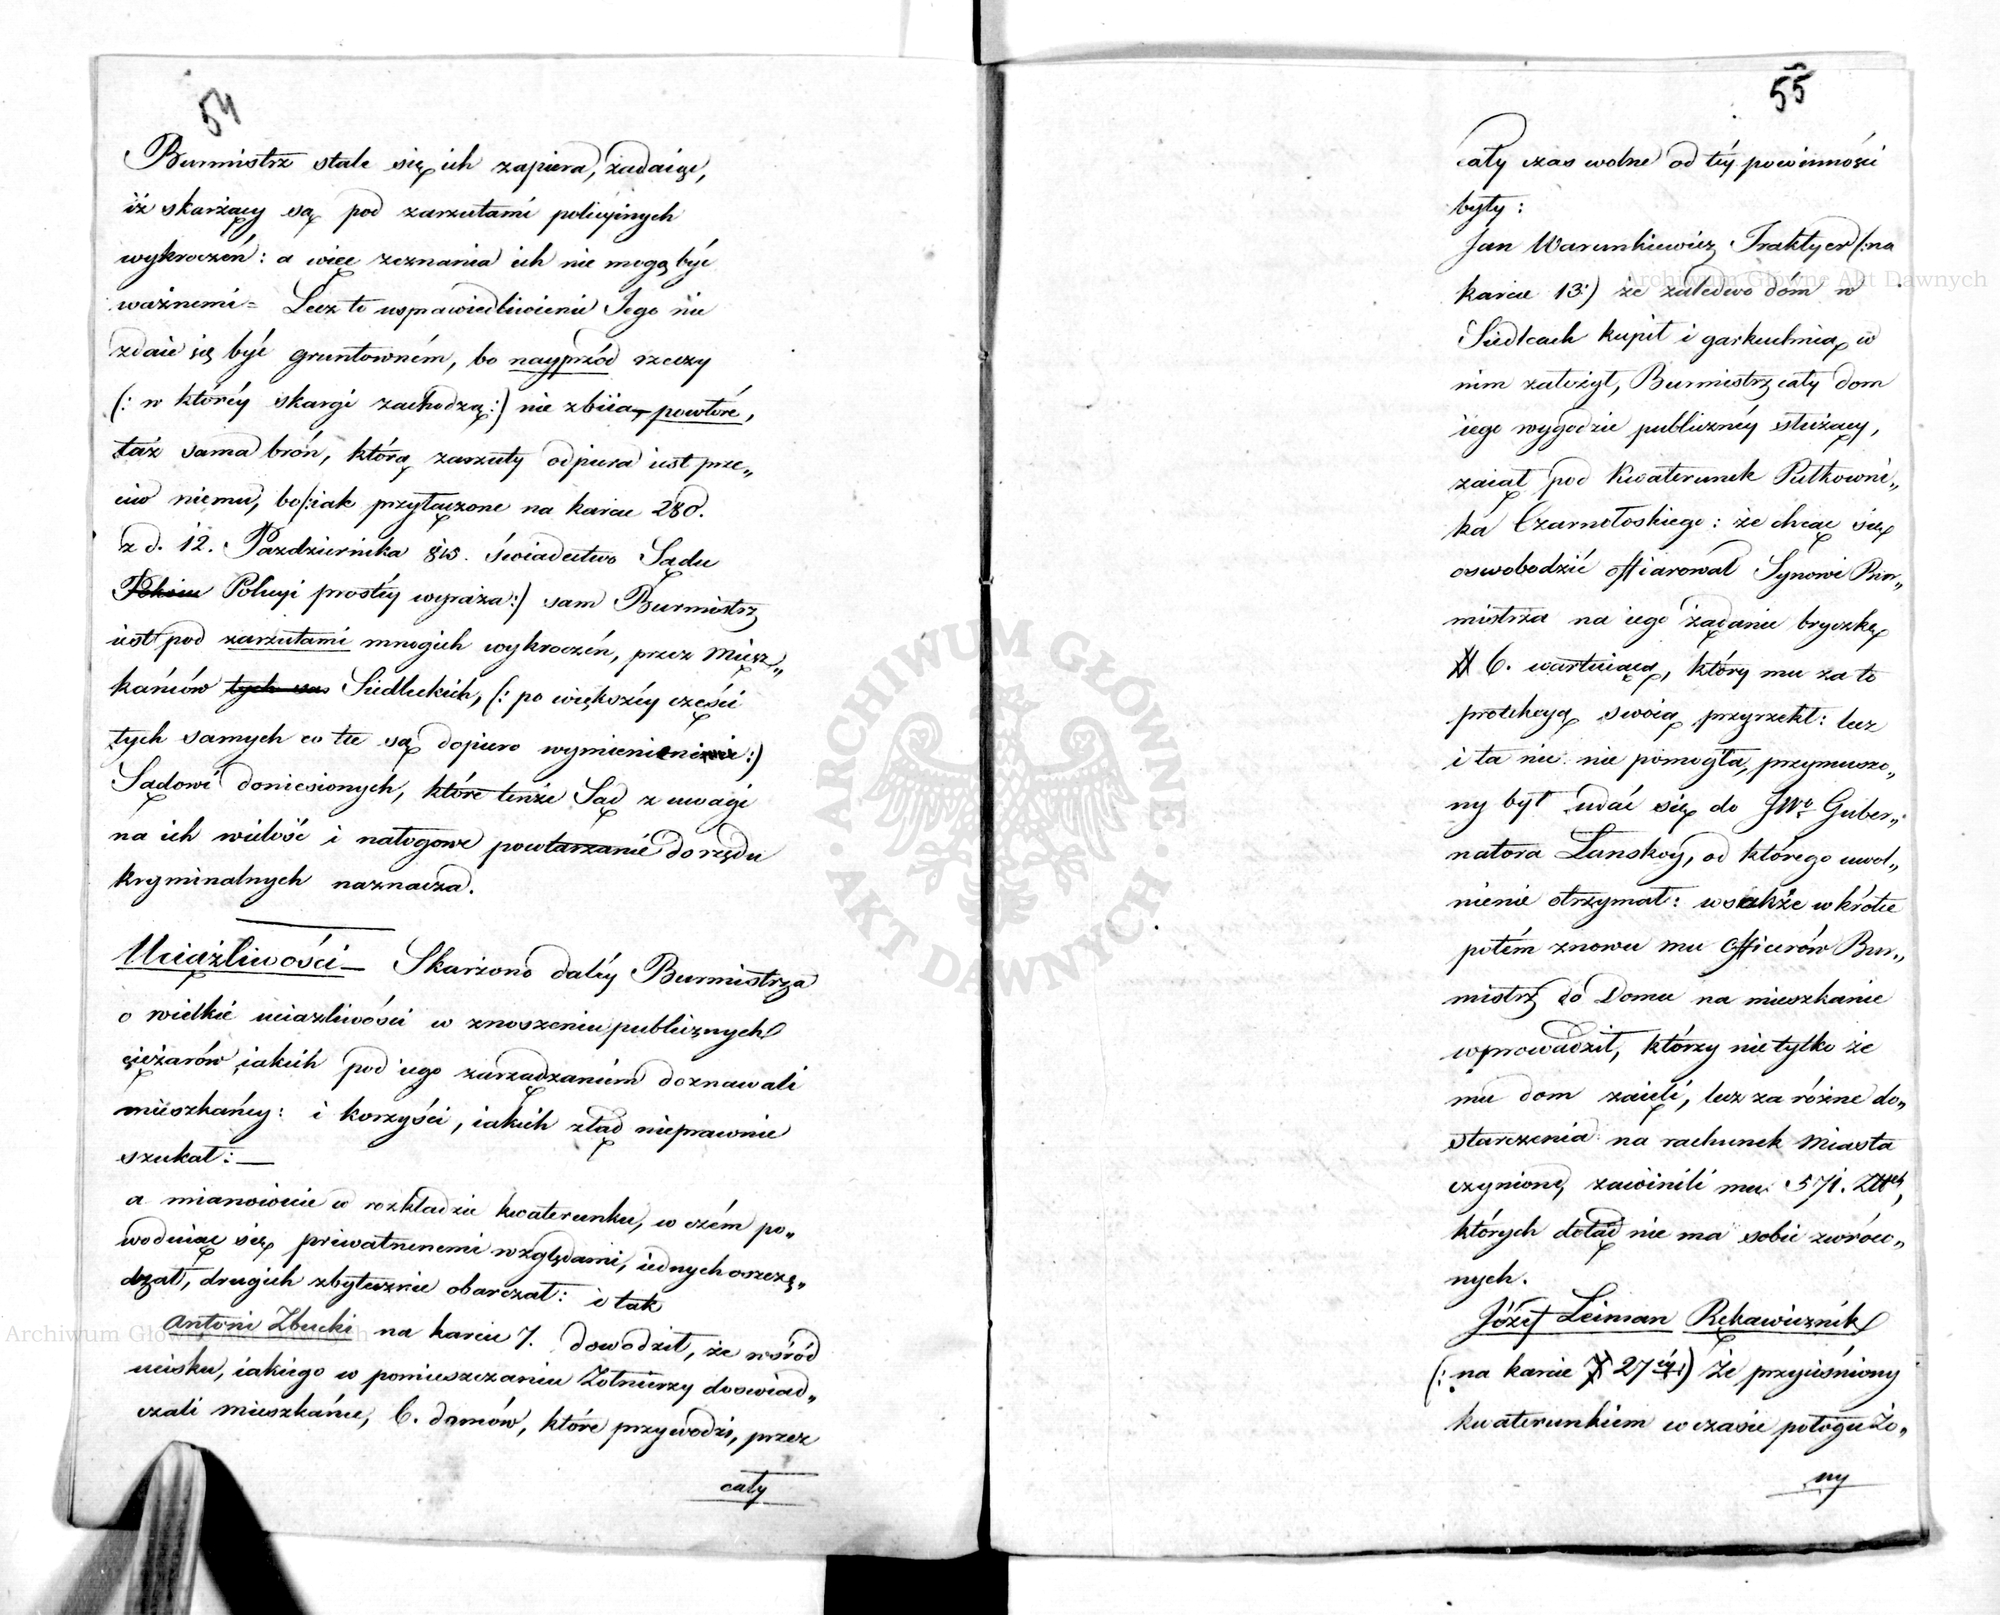 54
Burmistrz stale się ich zapiera, żadaiąc,
iż skarżący są pod zarzutami policyinych
wykroczeń: a więc zeznania ich nie mogą być
ważnemi = Lecz to usprawiedliwienie Jego nie
zdaie się być gruntowném, bo nayprzód rzeczy
(: w któréy skargi zachodzą:) nie zbiia, powtóre,
taż sama broń, którą zarzuty odpiera iest prze„
ciw niemu, bo /:iak przytączone na karcie 280.
z d. 12. Pazdziernika 815. świadectwo Sądu
Policyi prostéy wyraża:) sam Burmistrz
iest pod zarzutami mnogich wykroczeń, przez Miesz„
kańców tych sa Siedleckich, (: po większéy części
tych samych co tu są dopiero wymienieni :)
Sądowi doniesionych, które tenże Sąd z uwagi
na ich wielość i nałogowe powtarzanie do rzędu
kryminalnych naznacza.
Uciążliwości — Skarżono daléy Burmistrza
o wielkie uciążliwości w znoszeniu publicznych
ciężarów iakich pod iego zarządzaniem doznawali
mieszkańcy: i korzyści, iakich ztąd nieprawnie
szukał: —
a mianowicie w rozkładzie kwaterunku, w czém po„
wodując się priwatnemi względami, iednych oszczę„
dzał, drugich zbytecznie obarczał: i tak
Antoni Zbucki na karcie 7. dowodził, że wśród
ucisku, iakiego w pomieszczaniu Żołnierzy doswiad„
czali Mieszkańce, 6. domów, które przywodzi, przez
cały
55
cały czas wolne od téy powinności
były:
Jan Warunkiewicz Traktyer (:na
karcie 13:) że zaledwo dom w
Siedlcach kupił i garkuchnią w
nim założył, Burmistrz cały dom
iego wygodzie publicznéy służący,
zaiął pod Kwaterunek Pułkowni„
ka Czarnołoskiego: że chcąc się
oswobodzić offiarował Synowi Bur„
mistrza na iego żądanie bryczkę
# 6. wartuiącą, który mu za to
protekcyą swoią przyrzekł: lecz
i ta nic nie pomogła, przymuszo„
ny był udać się do JWo. Guber„
natora Lanskoy, od którego uwol„
nienie otrzymał: wszakże wkrótce
potém znowu mu Officerów Bur„
mistrz do Domu na mieszkanie
wprowadził, którzy nietylko że
mu dom zaieli, lecz za różne do„
starczenia na rachunek Miasta
czynione, zawinili mu 571. Złtch,
których dotąd nie ma sobie zwróco„
nych.
Józef Leiman Rękawicznik
(: na karcie 27éy:) Że przyciśniony
kwaterunkiem w czasie połogu Żo„
ny
ARCHIWUM GŁÓWNE
AKT DAWNYCH
Archiwum Główne Akt Dawnych
Archiwum Główne Akt Dawnych